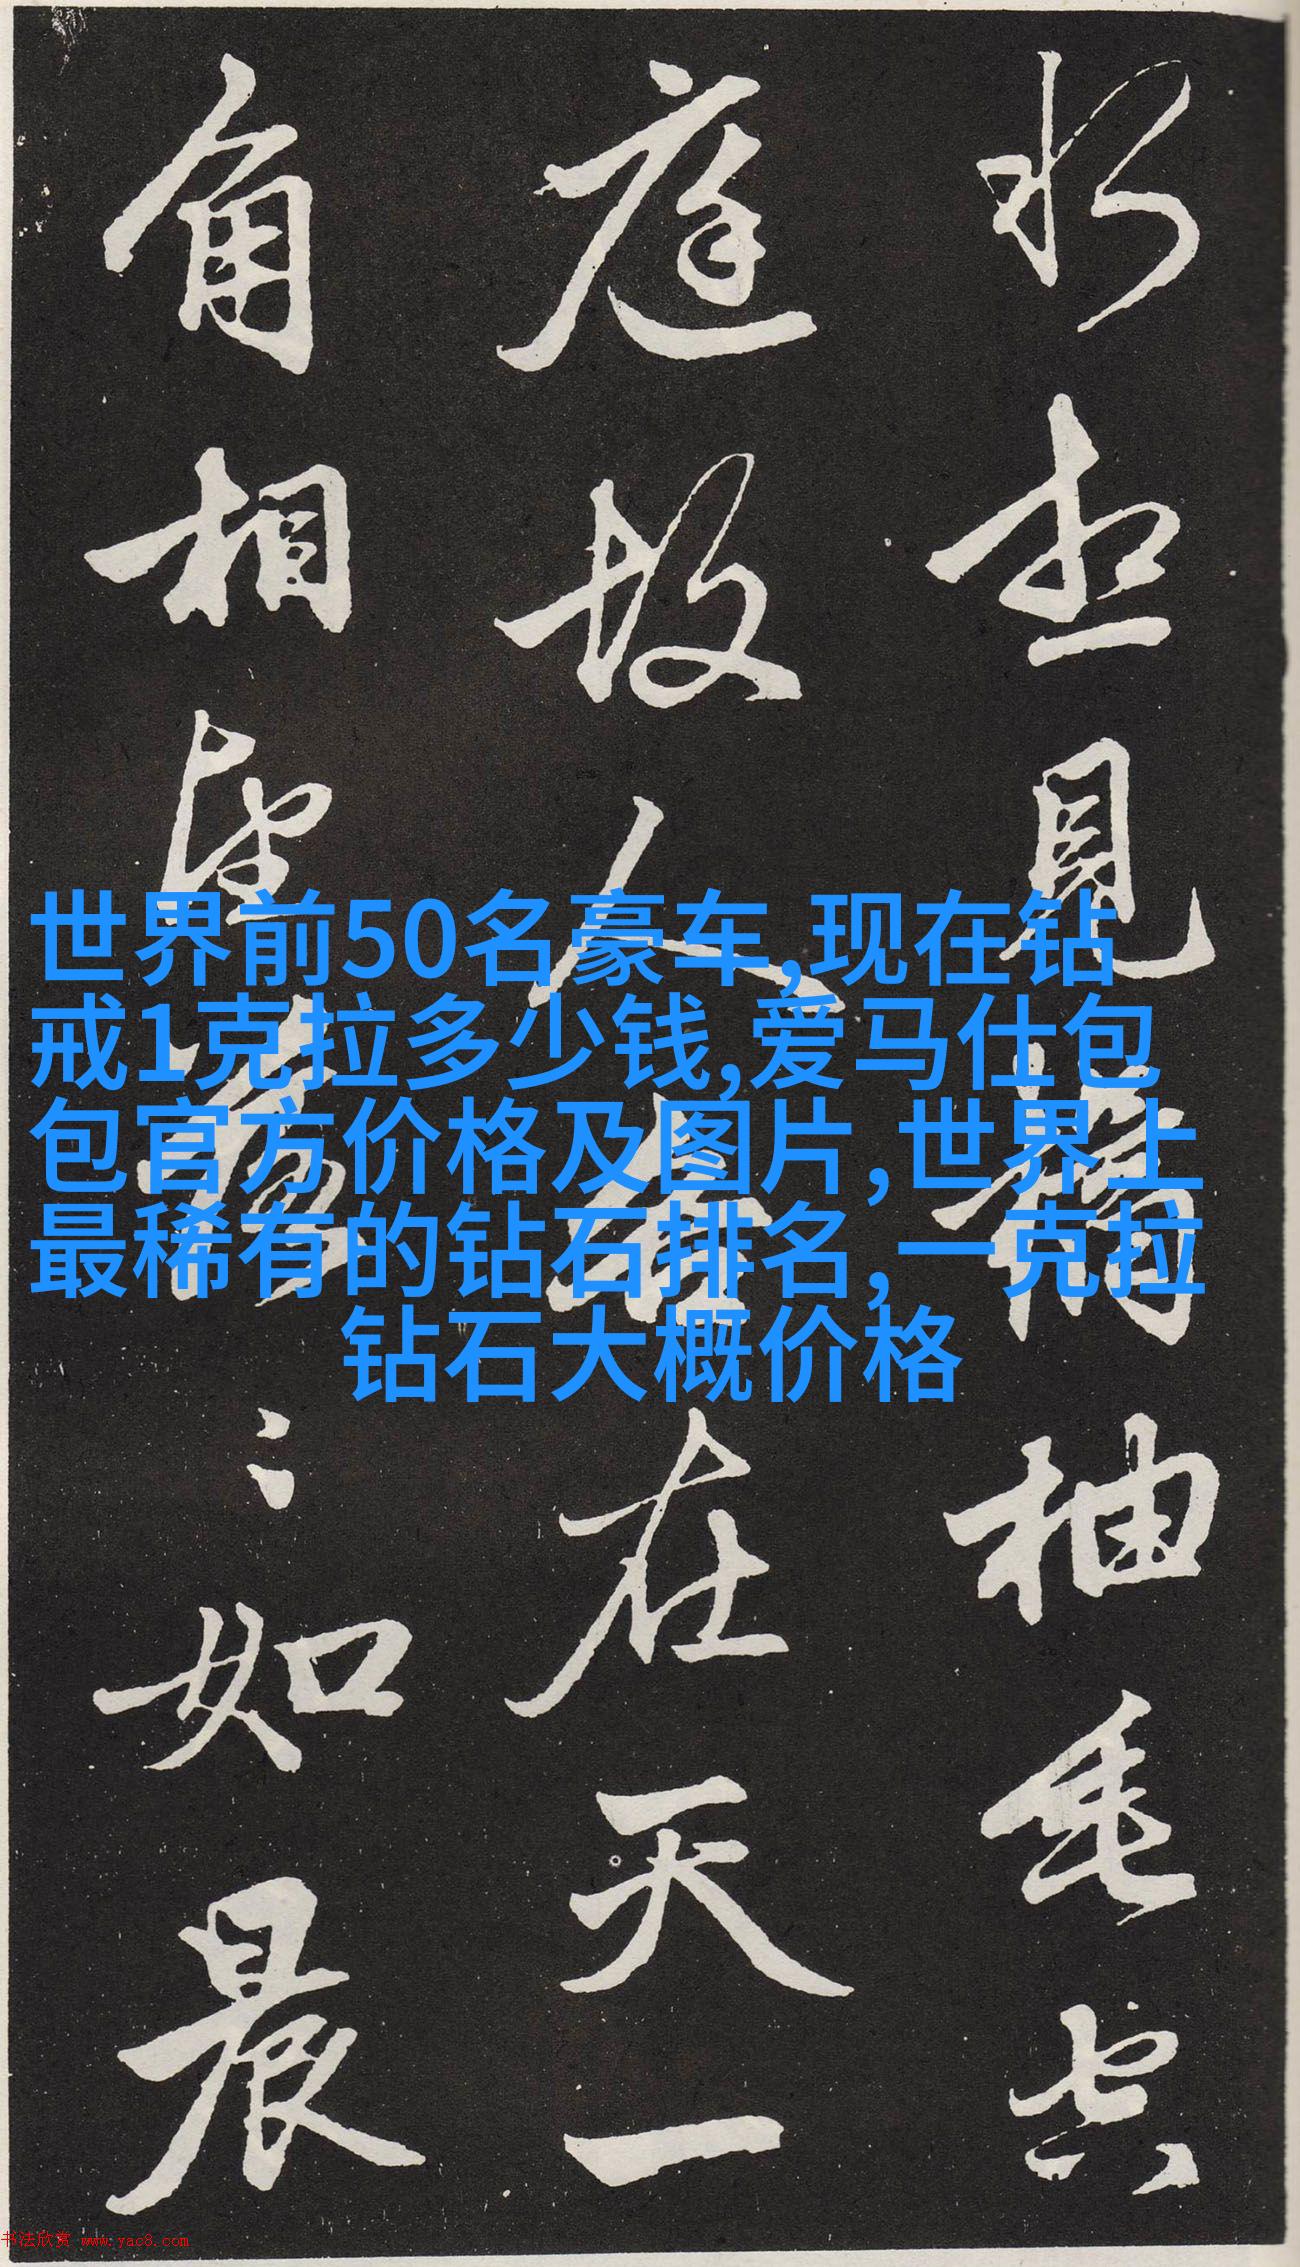 水想見橘柚垂空
庭故人各在天一
角相望落〻如晨
世界前50名豪车,现在钻
戒1克拉多少钱,爱马仕包
包官方价格及图片,世界上
最稀有的钻石排名,一克拉
钻石大概价格
书法欣赏 www.yac8.com